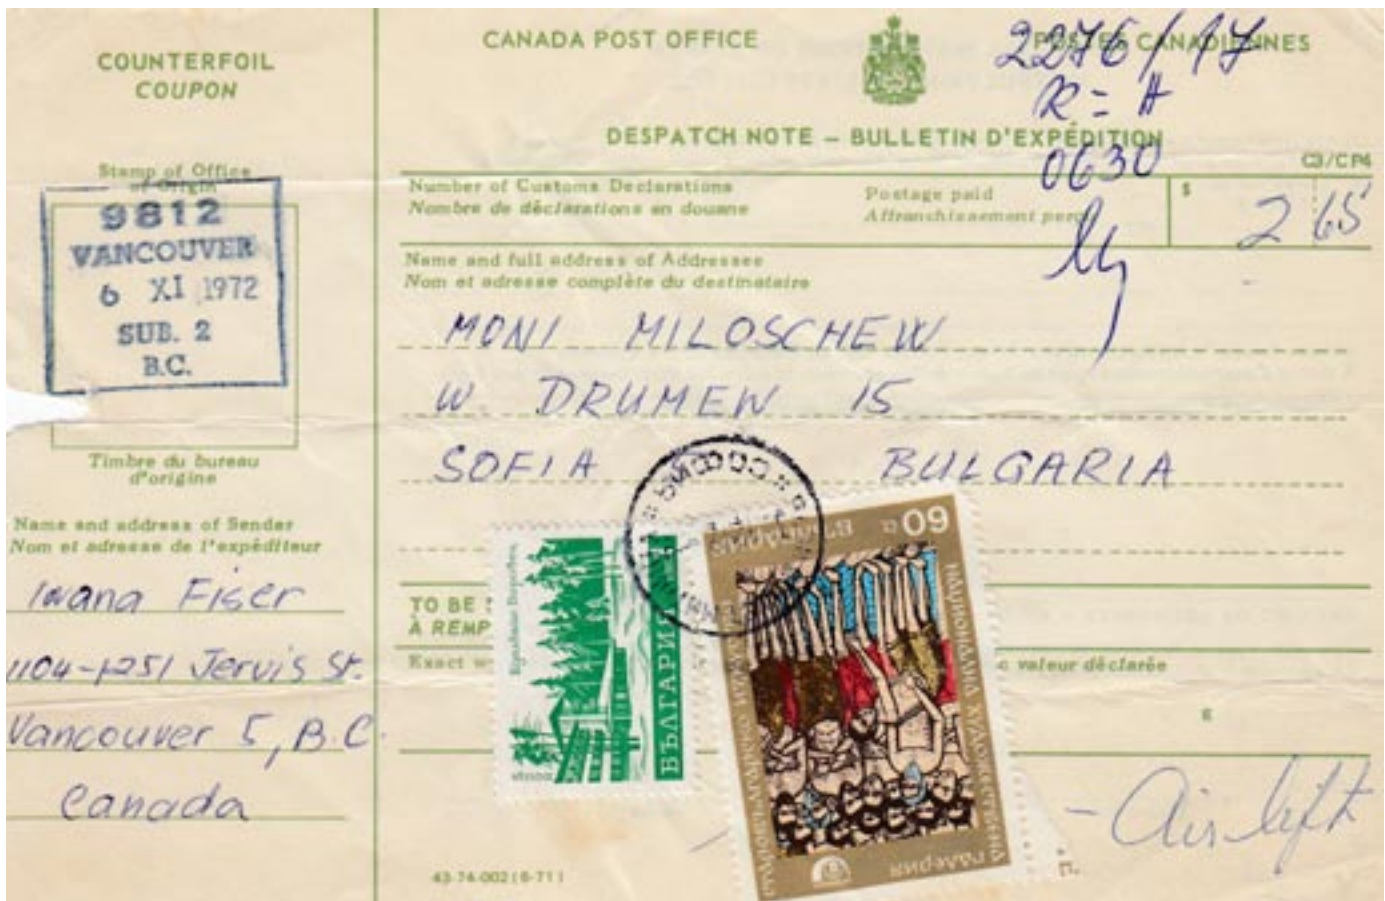 COUNTERFOIL
COUPON
Stamp of Office
of Origin
9812
VANCOUVER
6 XI 1972
SUB. 2
B.C.
Timbre du bureau
d'origine
Name and address of Sender
Nom et adresse de l'expéditeur
Iwana Fiser
1104-1251 Jervis St.
Vancouver 5, B.C.
Canada
CANADA POST OFFICE
POSTES CANADIENNES
2276/17
R = A
0630
DESPATCH NOTE – BULLETIN D'EXPÉDITION
C3/CP4
Number of Customs Declarations
Nombre de déclarations en douane
Postage paid
Affranchissement perçu
$ 2 65
Name and full address of Addressee
Nom et adresse complète du destinataire
MONI MILOSCHEW
W. DRUMEW 15
SOFIA BULGARIA
СОФИЯ
TO BE
À REMP
Exact
valeur déclarée
БЪЛГАРИЯ
60
България
НАЦИОНАЛНА ХУДОЖЕСТВЕНА
галерия
- Air lift
43-74-002 (6-71)